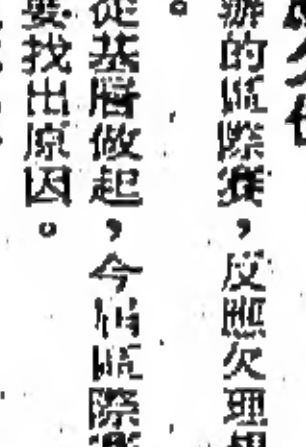 辦的區際賽，反應欠理
。
從基層做起，今屆區際
要找出原因。